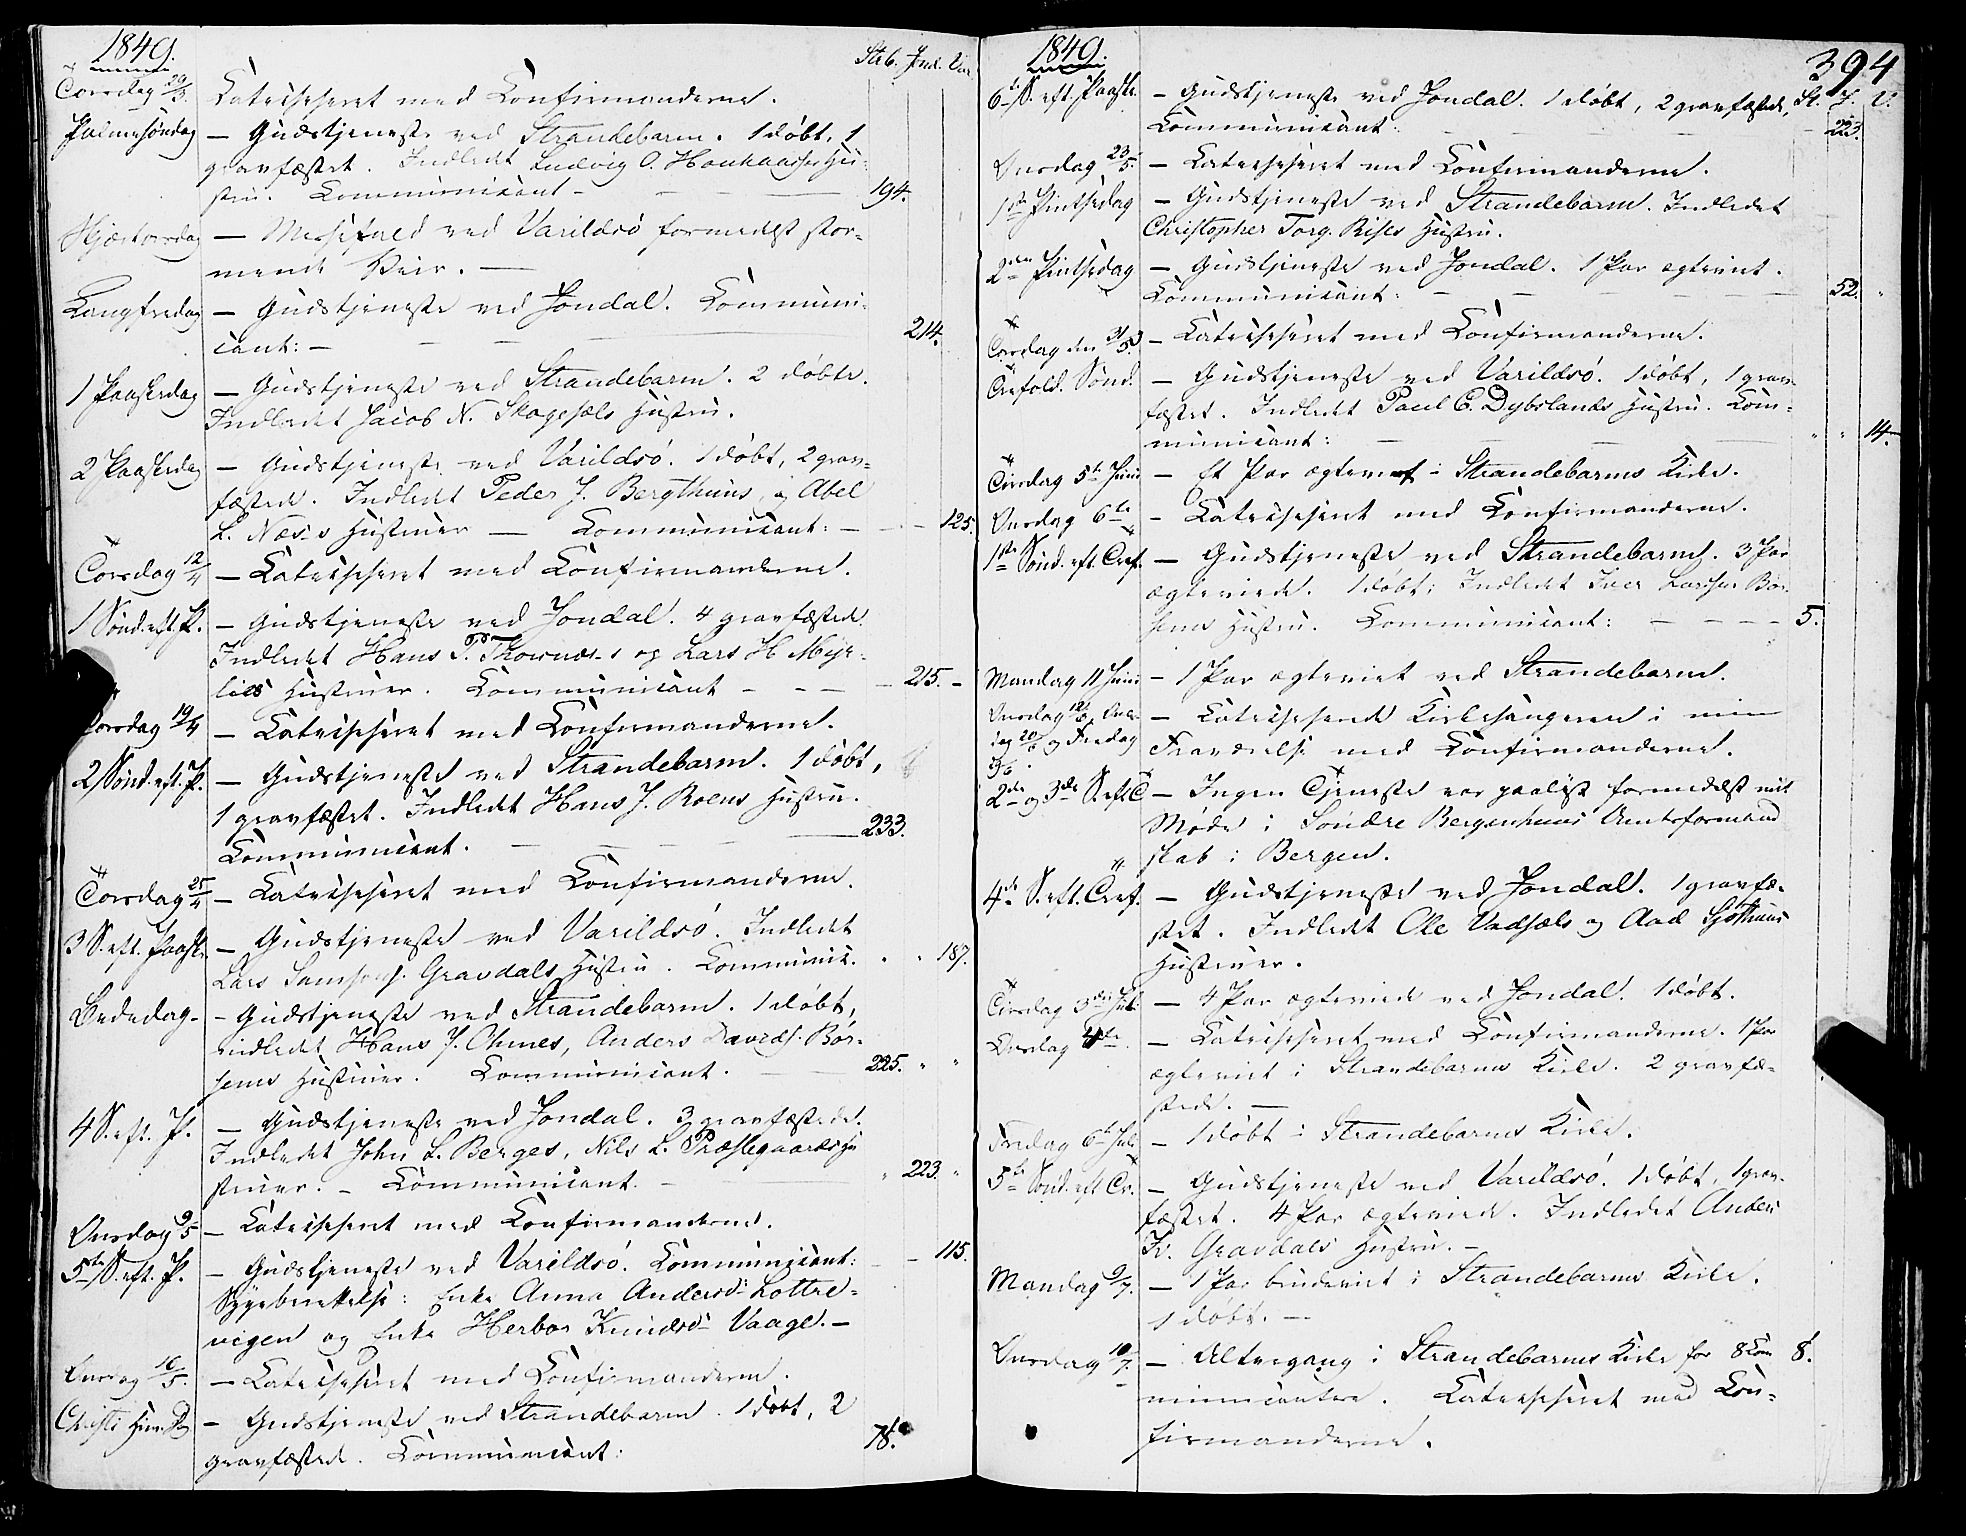 1849.
Stb. Jond. Var.
Torsdag 29/3. Catechiseret med Confirmanderne.
Palmesøndag — Gudstjeneste ved Strandebarm. 1 døbt, 1
gravfæstet. Indledet Ludvig O. Haukaasses Hu-
stru. Communicant — 194.
Skjærtorsdag — Messefald ved Varildsö formedelst stor-
mende Veir. —
Langfredag — Gudstjeneste ved Jondal. Communi-
cant: — 214.
1 Paaskedag — Gudstjeneste ved Strandebarm. 2 døbte.
Indledet Jacob N. Skogesæls Hustru.
2 Paaskedag — Gudstjeneste ved Varildsö. 1 døbt, 2 grav-
fæstede. Indledet Peder J. Bergthuns, og Abel
L. Næss's Hustruer — Communicant: — 125.
Torsdag 12/4 — Catechiseret med Confirmanderne.
1 Sönd. eft. P. — Gudstjeneste ved Jondal. 4 gravfæstede.
Indledet Hans T. Thornæs's og Lars H. Myk-
lies Hustruer. Communicant — 215.
Torsdag 19/4 — Catechiseret med Confirmanderne.
2 Sönd. eft. P. — Gudstjeneste ved Strandebarm. 1 døbt,
1 gravfæstet. Indledet Hans J. Roens Hustru.
Communicant. — 233.
Torsdag 25/4 — Catechiseret med Confirmanderne.
3 S. eft. Paaske — Gudstjeneste ved Varildsö. Indledet
Lars Samsons. Gravdals Hustru. Communic. 187.
Bededag — Gudstjeneste ved Strandebarm. 1 døbt,
indledet Hans J. Omes, Anders Davids. Bör-
sems Hustruer. Communicant. 225.
4 S. eft. P. — Gudstjeneste ved Jondal. 3 gravfæstede.
Indledet John L. Berges, Nils L. Præstegaards Hu-
struer. — Communicant. — 223.
Onsdag 9/5 — Catechiseret med Confirmanderne.
5te S. eft. P. — Gudstjeneste ved Varildsö. Communicant: 115.
Sygeberettelse: Enke Anna Andersd. Lottre-
vigen og Enke Herbor Knudsd. Vaage. —
Onsdag 16/5. — Catechiseret med Confirmanderne.
Christi Him. D. — Gudstjeneste ved Strandebarm. 1 døbt, 2
gravfæstede. Communicant: 78.
1849.
394
6te S. eft. Paaske. — Gudstjeneste ved Jondal. 1 døbt, 2 gravfæstede, St. J. V.
Communicant: 223.
Onsdag 23/5. — Catechiseret med Confirmanderne.
1ste Pintsedag — Gudstjeneste ved Strandebarm. Indledet
Christopher Torg. Rises Hustru.
2den Pintsedag — Gudstjeneste ved Jondal. 1 Par ægteviet.
Communicant: — 52.
Torsdag den 31/5. — Catechiseret med Confirmanderne.
Trefold. Sönd. — Gudstjeneste ved Varildsö. 1 døbt, 1 grav-
fæstet. Indledet Paul E. Dybslands Hustru. Com-
municant: — 14.
Tirsdag 5te Juni — Et Par ægteviet i Strandebarms Kirke.
Onsdag 6te — Catechiseret med Confirmanderne.
1ste Sönd. eft. Tref. — Gudstjeneste ved Strandebarm. 3 Par
ægteviede. 1 døbt; Indledet Iver Larsen Bör-
sems Hustru. Communicant: — 5.
Mandag 11 Juni — 1 Par ægteviet ved Strandebarm.
Onsdag 13/6, Ons-
dag 20/6 og Fredag — Catechiserede Kirkesangeren i min
Fraværelse med Confirmanderne.
2de og 3die S. eft. T. — Ingen Tjeneste var paalyst formedelst mit
Møde i Söndre Bergenhuus Amtsformand-
skab i Bergen.
4de S. eft. Tref. — Gudstjeneste ved Jondal. 1 gravfæ-
stet. Indledet Ole Vadsæls og Aad Sjöthuus
Hustruer.
Tirsdag 3die Juli — 4 Par ægteviede ved Jondal. 1 døbt.
Onsdag 4de. — Catechiseret med Confirmanderne. 1 Par
ægteviet i Strandebarms Kirke. 2 gravfæ-
stede. —
Fredag 6te Juli — 1 døbt i Strandebarms Kirke.
5te Sönd. eft. Tr. — Gudstjeneste ved Varildsö. 1 døbt, 1 grav-
fæstet. 4 Par ægteviede. Indledet Anders
Iv. Gravdals Hustru. —
Mandag 9/7. — 1 Par brudeviet i Strandebarms Kirke.
1 døbt. —
Onsdag 10/7. — Altergang i Strandebarms Kirke for 8 Com- 8.
municantere. Catechiseret med Con-
firmanderne.